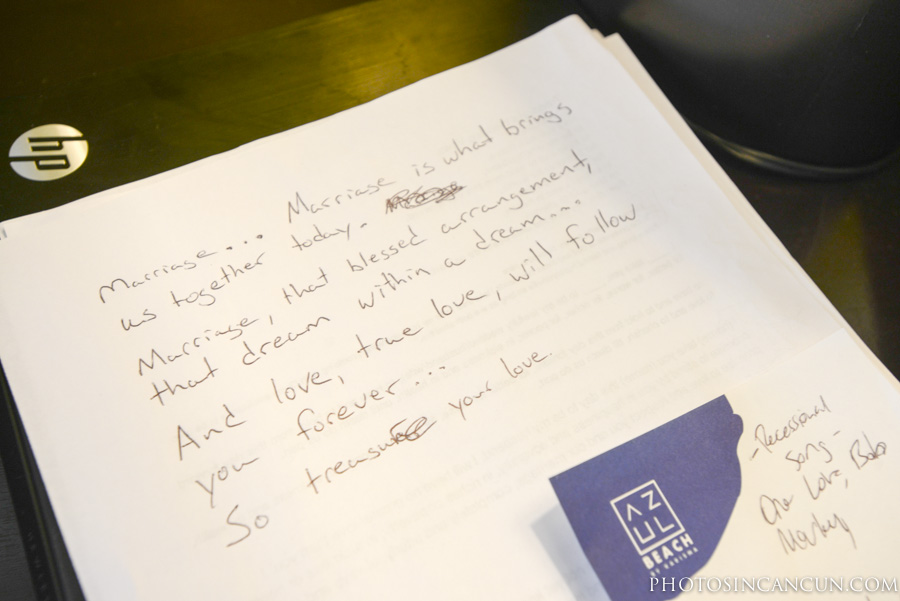 hp
Marriage... Marriage is what brings
us together today.
Marriage, that blessed arrangement,
that dream within a dream...
And love, true love, will follow
you forever...
So treasure your love.
AZ
UL
BEACH
BY KARISMA
-Recessional
song-
One Love, Bob
Marley
PHOTOSINCANCUN.COM